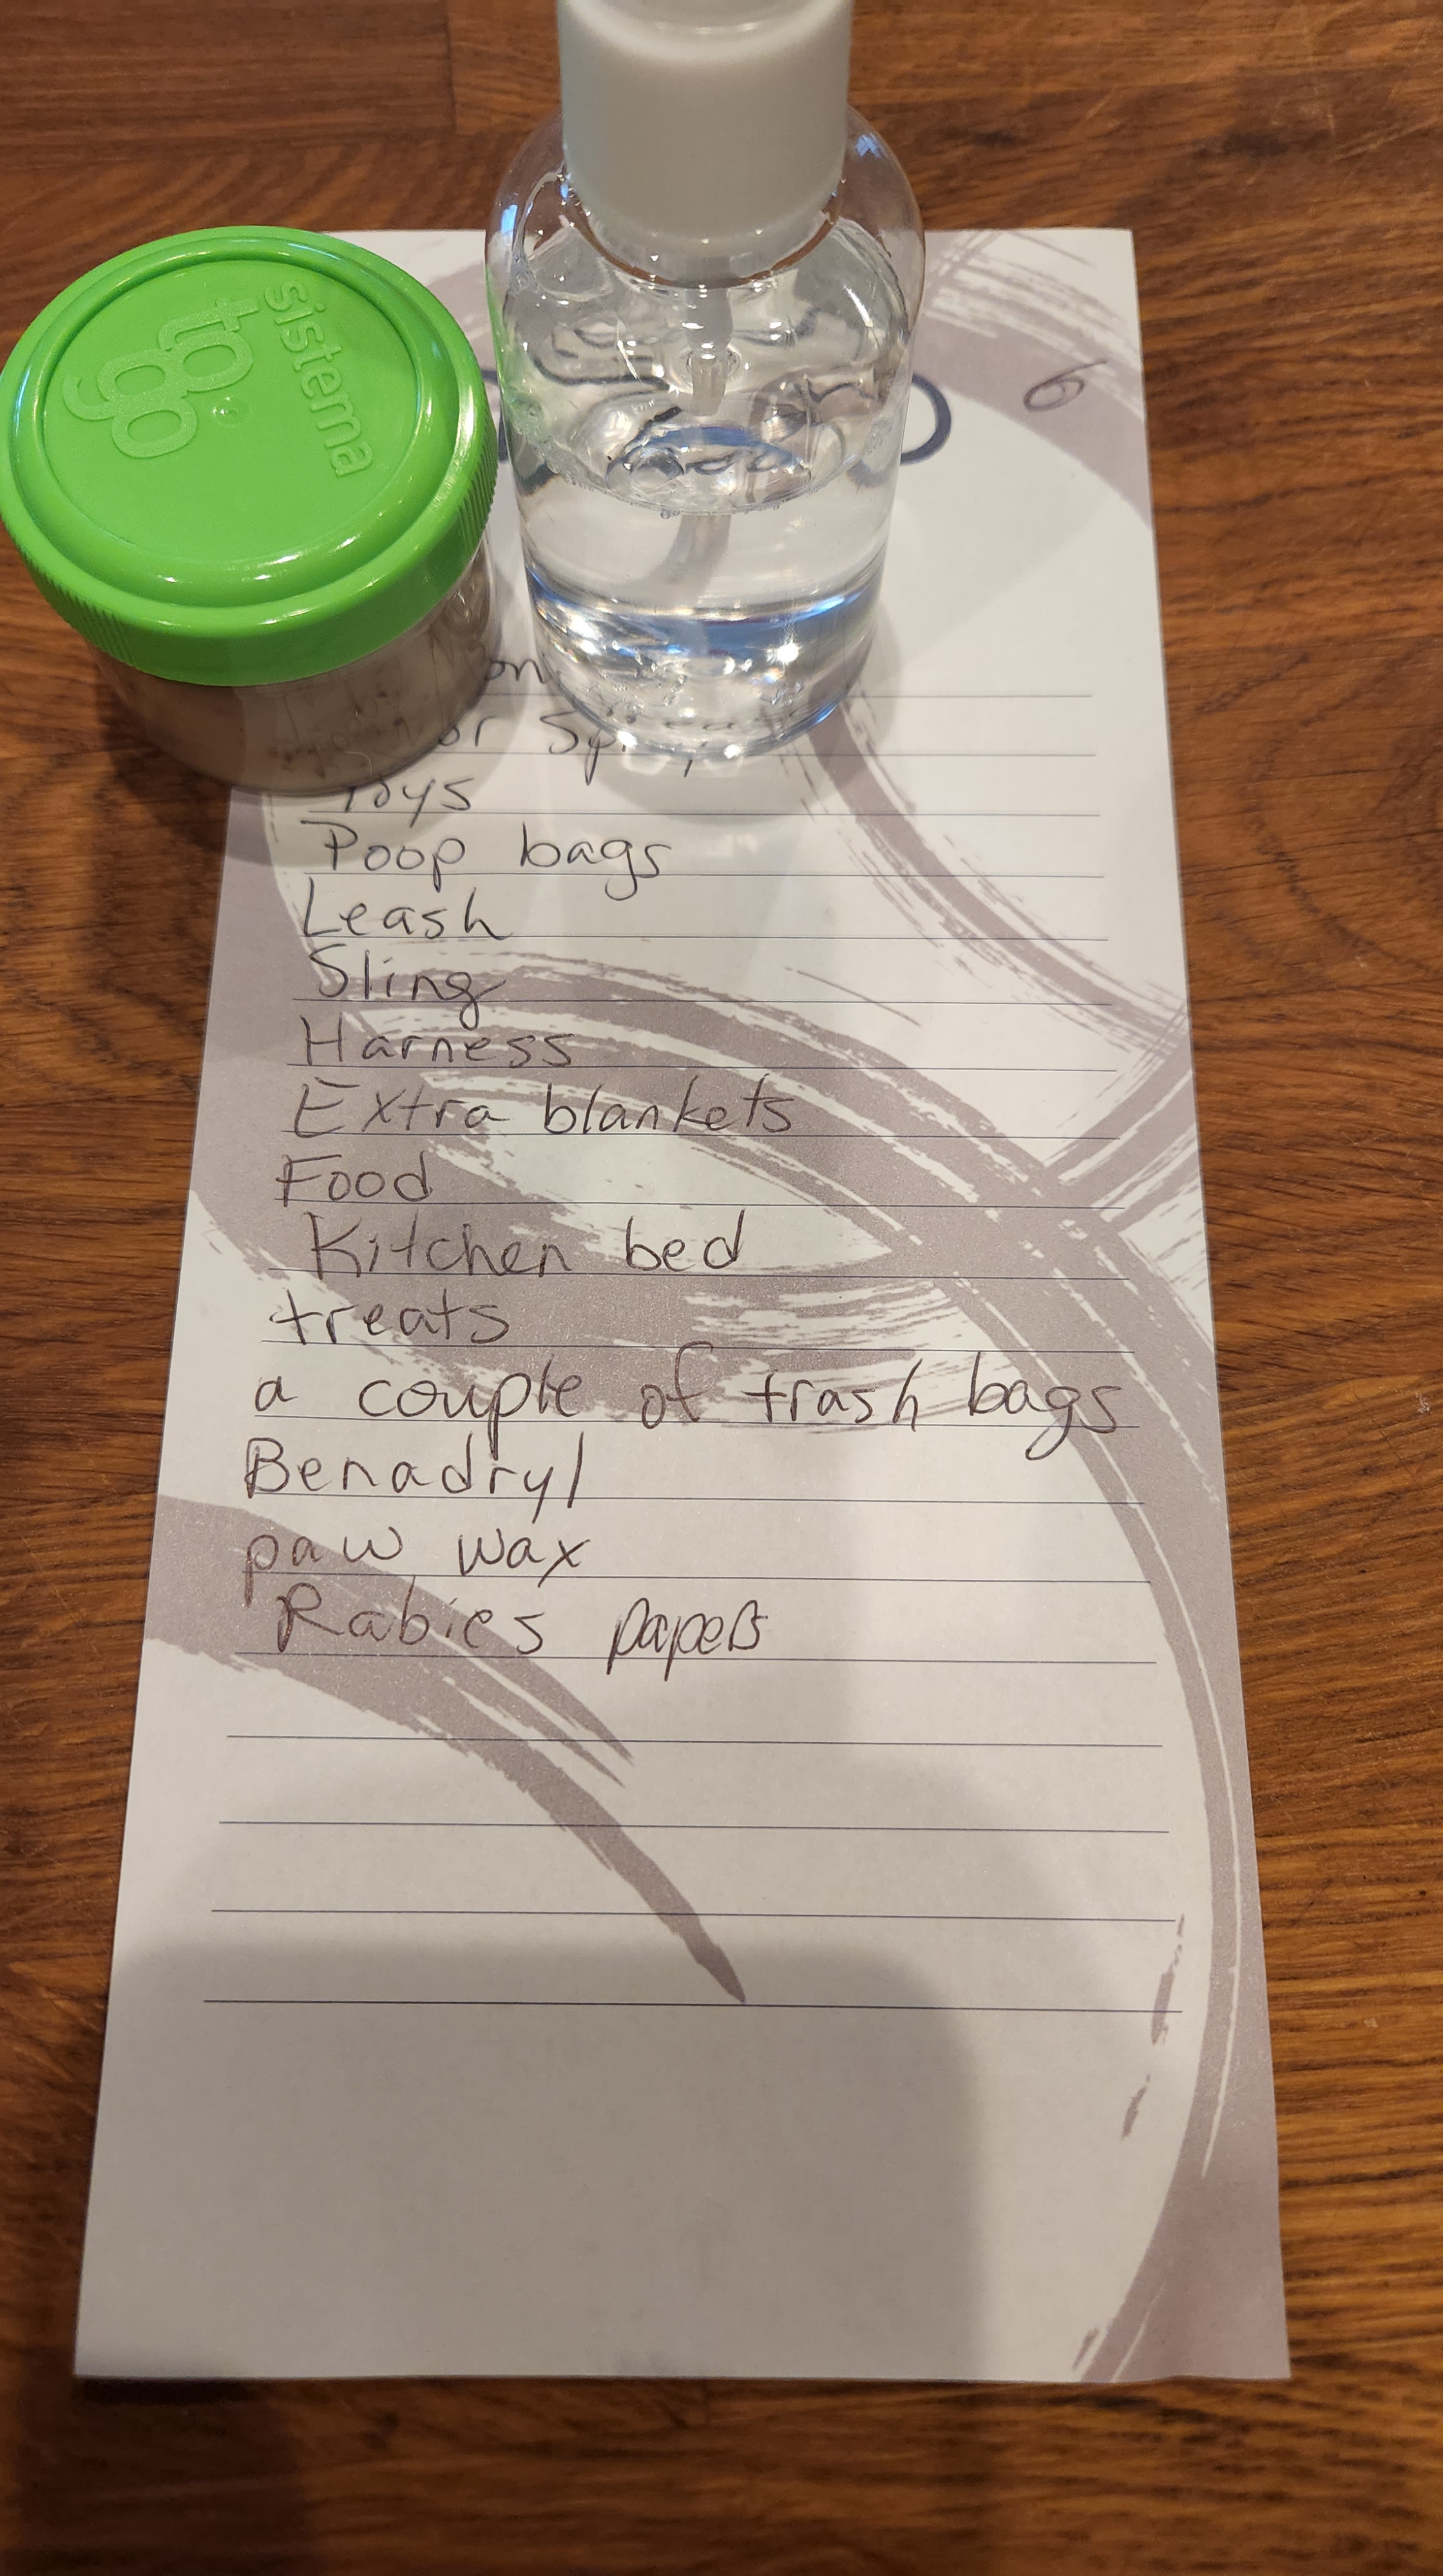 sistema
to
go
6
Toys
Poop bags
Leash
Sling
Harness
Extra blankets
Food
Kitchen bed
treats
a couple of trash bags
Benadryl
paw wax
Rabies papers